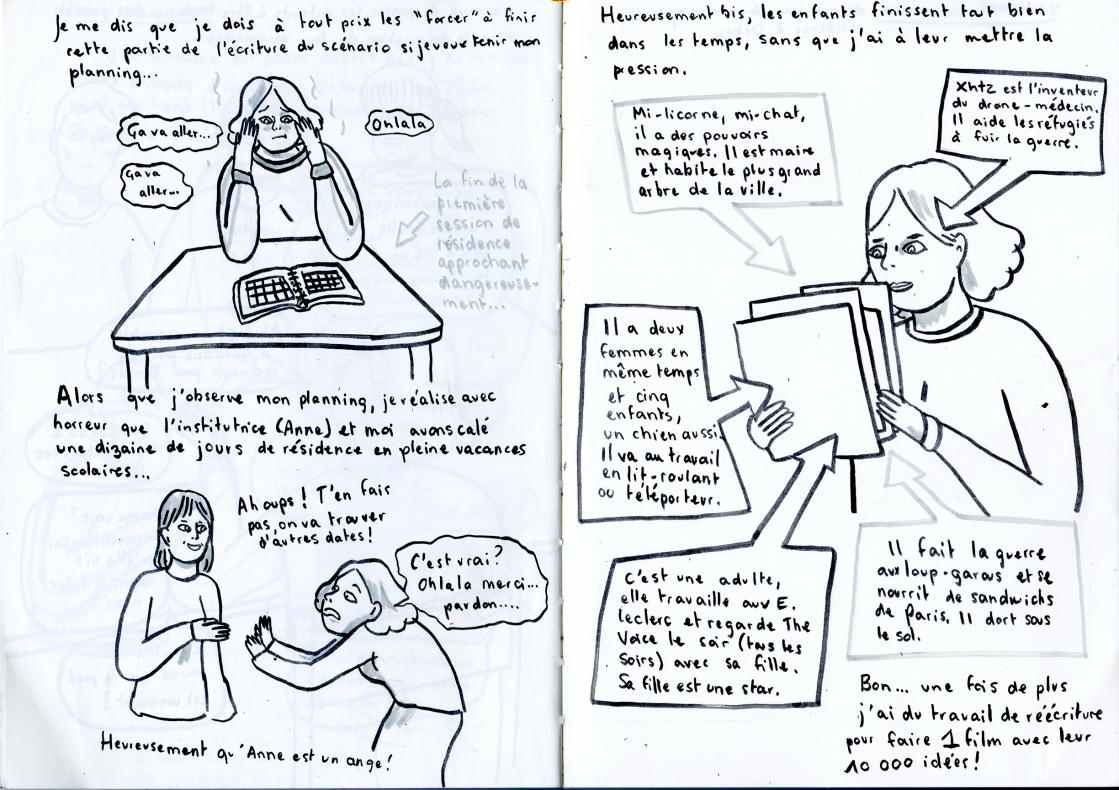 Je me dis que je dois à tout prix les "forcer" à finir
cette partie de l'écriture du scénario si je veux tenir mon
planning...
Ça va aller...
Ohlala
Ça va
aller...
La fin de la
première
session de
résidence
approchant
dangereuse-
ment...
Alors que j'observe mon planning, je réalise avec
horreur que l'institutrice (Anne) et moi avons calé
une dizaine de jours de résidence en pleine vacances
scolaires...
Ah oups ! T'en fais
pas, on va trouver
d'autres dates !
C'est vrai ?
Ohlala merci...
pardon....
Heureusement qu'Anne est un ange !
Heureusement bis, les enfants finissent tout bien
dans les temps, sans que j'ai à leur mettre la
pression.
Mi-licorne, mi-chat,
il a des pouvoirs
magiques. Il est maire
et habite le plus grand
arbre de la ville.
Xhtz est l'inventeur
du drone-médecin.
Il aide les réfugiés
à fuir la guerre.
Il a deux
femmes en
même temps
et cinq
enfants,
un chien aussi.
Il va au travail
en lit-roulant
ou téléporteur.
C'est une adulte,
elle travaille aux E.
leclerc et regarde The
Voice le soir (tous les
soirs) avec sa fille.
Sa fille est une star.
Il fait la guerre
aux loup-garous et se
nourrit de sandwichs
de Paris. Il dort sous
le sol.
Bon... une fois de plus
j'ai du travail de réécriture
pour faire 1 film avec leur
10 000 idées !